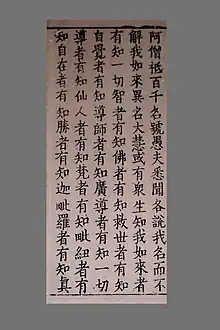 阿僧祇百千名號愚夫悉聞各說我名而不
解我如來異名大慧或有衆生知我如來者
有知一切智者有知佛者有知救世者有知
自覺者有知導師者有知廣導者有知一切
導者有知仙人者有知梵者有知毗紐者有
知自在者有知勝者有知迦毗羅者有知眞